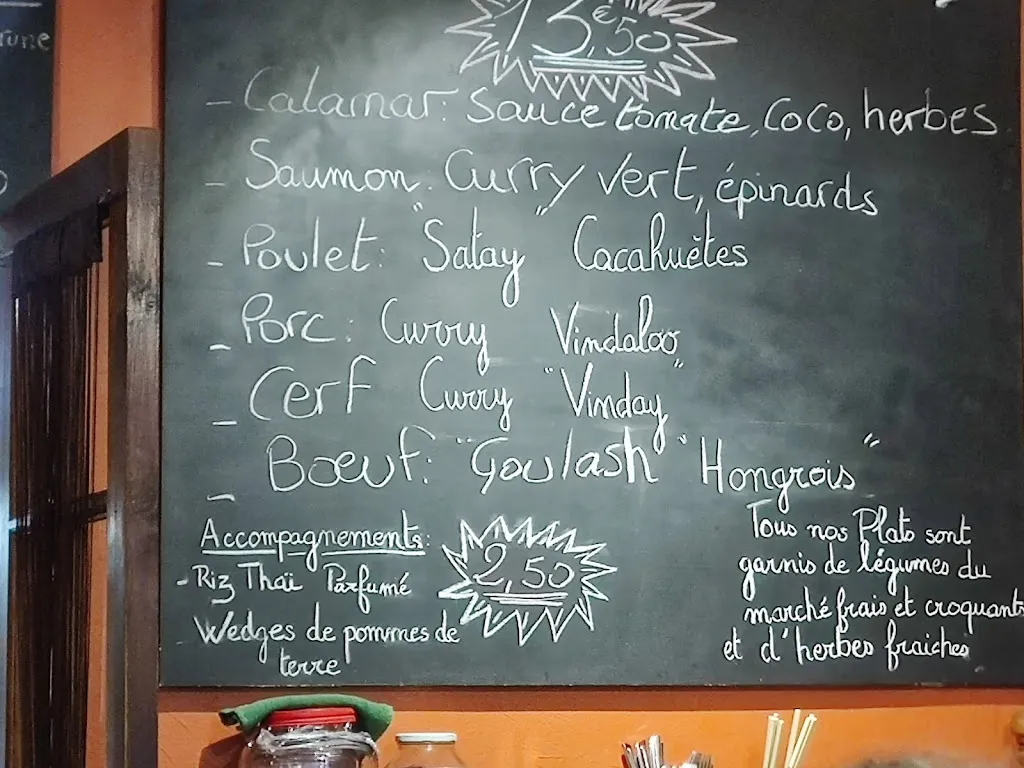 13,€50
- Calamar: Sauce tomate, Coco, herbes
- Saumon. Curry vert, épinards
- Poulet: "Satay" Cacahuètes
- Porc: Curry Vindaloo
- Cerf Curry "Vinday"
- Bœuf: "Goulash" "Hongrois"
Accompagnements:
- Riz Thaï Parfumé
- Wedges de pommes de
terre
2,50
Tous nos Plats sont
garnis de légumes du
marché frais et croquants
et d'herbes fraiches